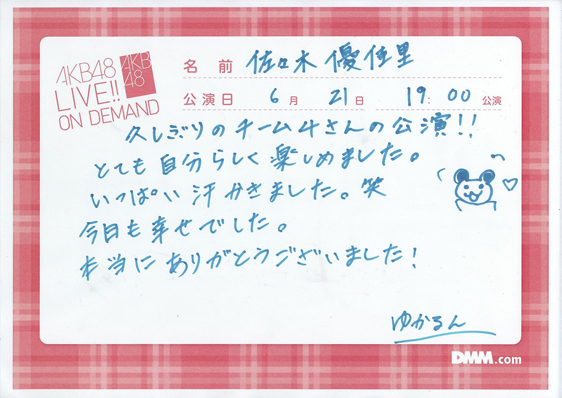 AKB48
LIVE!!
ON DEMAND
AKB
48
名前 佐々木優佳里
公演日 6月 21日 19:00 公演
久しぶりのチーム4さんの公演!!
とても自分らしく楽しめました。
いっぱい汗かきました。笑
今日も幸せでした。
本当にありがとうございました!
ゆかるん
DMM.com